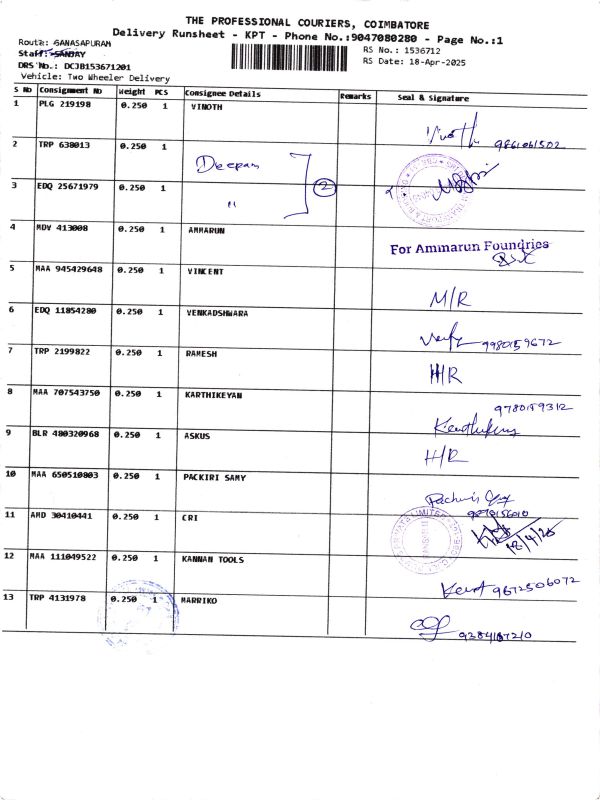 THE PROFESSIONAL COURIERS, COIMBATORE
Delivery Runsheet - KPT - Phone No.:9047080280 - Page No.:1
Route: GANASAPURAM
Staff: SANJAY
DRS No.: DCJB153671201
Vehicle: Two Wheeler Delivery
RS No.: 1536712
RS Date: 18-Apr-2025
S No Consignment No Weight PCS Consignee Details Remarks Seal & Signature
1 PLG 219198 0.250 1 VINOTH
Vinoth 9861061502
2 TRP 638013 0.250 1
Deepam
3 EDQ 25671979 0.250 1
" 2
4 MDV 413008 0.250 1 AMMARUN
For Ammarun Foundries
5 MAA 945429648 0.250 1 VINCENT
M/R
6 EDQ 11854280 0.250 1 VENKADSHWARA
9980159672
7 TRP 2199822 0.250 1 RAMESH
H/R
8 MAA 707543750 0.250 1 KARTHIKEYAN
9780159312
9 BLR 480320968 0.250 1 ASKUS
H/R
10 MAA 650510803 0.250 1 PACKIRI SAMY
11 AMD 30410441 0.250 1 CRI
12 MAA 111049522 0.250 1 KANNAN TOOLS
9672506072
13 TRP 4131978 0.250 1 MARRIKO